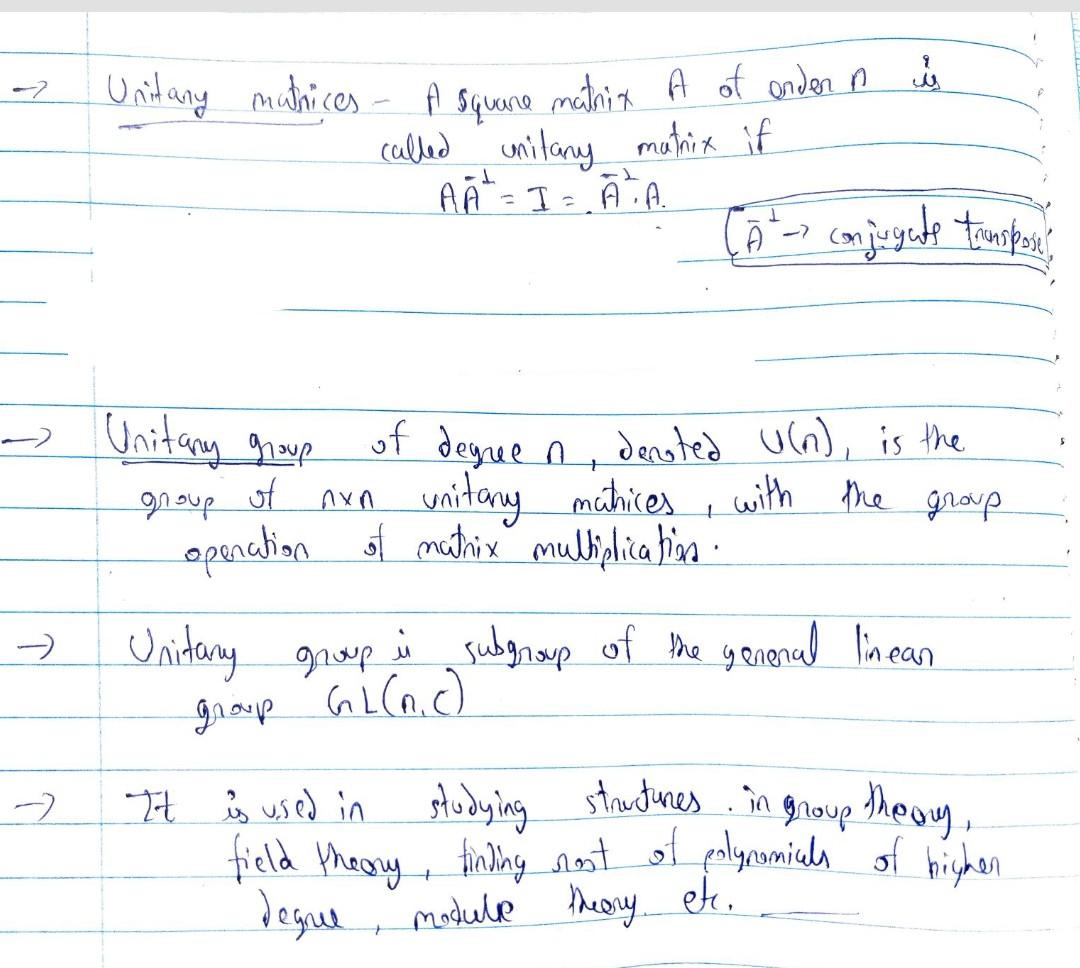 → Unitary matrices - A square matrix A of order n is
called unitary matrix if
AĀᵗ = I = Āᵗ.A.
Āᵗ → conjugate transpose
→ Unitary group of degree n, denoted U(n), is the
group of n×n unitary matrices, with the group
operation of matrix multiplication.
→ Unitary group is subgroup of the general linear
group GL(n,C)
→ It is used in studying structures . in group theory,
field theory, finding root of polynomials of higher
degree, module theory. etc.